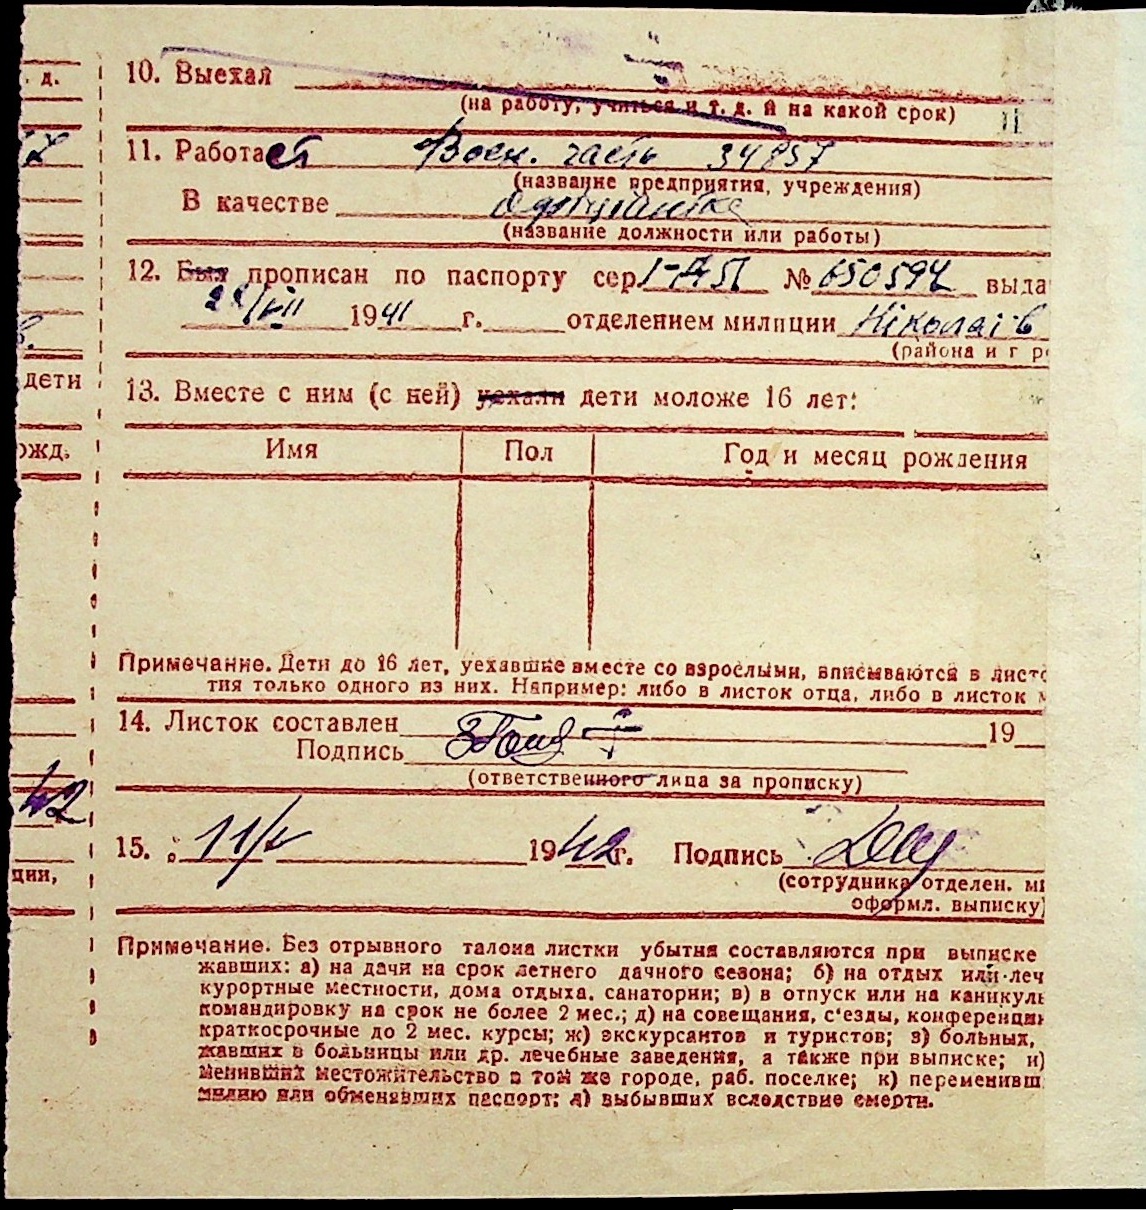 . д.
10. Выехал
(на работу, учиться и т. д. и на какой срок)
11. Работает Воен. часть 34857
(название предприятия, учреждения)
В качестве официантка
(название должности или работы)
12. Был прописан по паспорту сер I-АП № 650594 выда
1941 г. отделением милиции Ніколаів
(района и г р
дети
13. Вместе с ним (с ней) уехали дети моложе 16 лет:
ожд.
Имя Пол Год и месяц рождения
Примечание. Дети до 16 лет, уехавшие вместе со взрослыми, вписываются в листо
тия только одного из них. Например: либо в листок отца, либо в листок м
14. Листок составлен 19
Подпись
(ответственного лица за прописку)
42
15. 11/V 1942г. Подпись
ции,
(сотрудника отделен. ми
оформл. выписку)
Примечание. Без отрывного талона листки убытия составляются при выписке
жавших: а) на дачи на срок летнего дачного сезона; б) на отдых или леч
курортные местности, дома отдыха, санатории; в) в отпуск или на каникулы
командировку на срок не более 2 мес.; д) на совещания, с'езды, конференции
краткосрочные до 2 мес. курсы; ж) экскурсантов и туристов; з) больных,
жавших в больницы или др. лечебные заведения, а также при выписке; и)
менивших местожительство в том же городе, раб. поселке; к) переменивш
милию или обменявших паспорт; л) выбывших вследствие смерти.